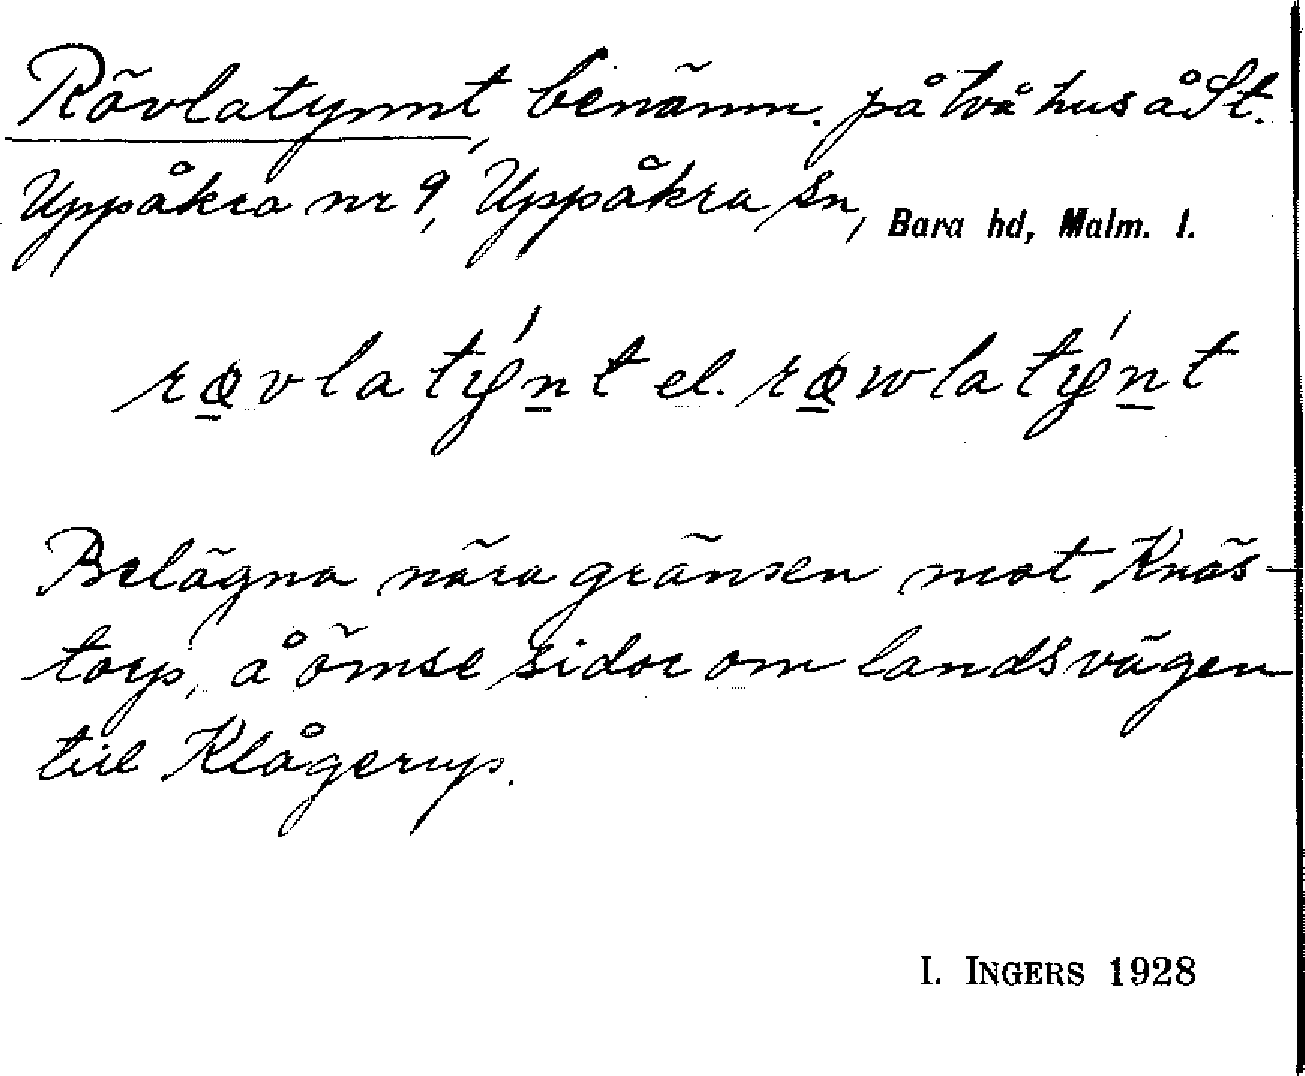 Rävlatynnt, benämn. på två hus å St.
Uppåkra nr 9, Uppåkra sn, Bara hd, Malm. l.
rævlatýnt el. ræwlatýnt
Belägna nära gränsen mot Knäs-
torp, å ömse sidor om landsvägen
till Klågerup.
I. INGERS 1928